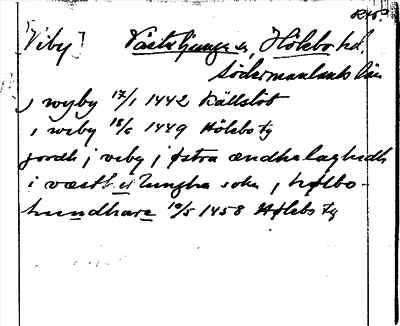 [Viby] Västerljunga sn, Hölebo hd.
Södermanlands län
j wyby 17/1 1442 Källslöt
i weby 18/6 1449 Hölebo tg
jordh j veby j østra ændha laghudh
i væstb. et liungha sokn, hølbo-
hundhare 10/5 1458 Hølebo tg